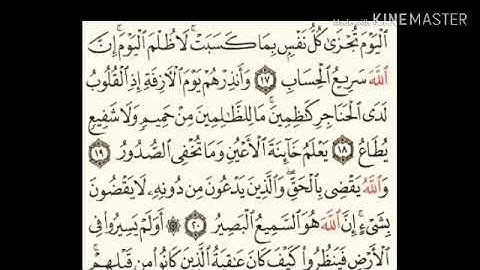 Made with KINEMASTER
ٱلْيَوْمَ تُجْزَىٰ كُلُّ نَفْسٍۭ بِمَا كَسَبَتْ ۚ لَا ظُلْمَ ٱلْيَوْمَ ۚ إِنَّ
ٱللَّهَ سَرِيعُ ٱلْحِسَابِ ١٧ وَأَنذِرْهُمْ يَوْمَ ٱلْـَٔازِفَةِ إِذِ ٱلْقُلُوبُ
لَدَى ٱلْحَنَاجِرِ كَـٰظِمِينَ ۚ مَا لِلظَّـٰلِمِينَ مِنْ حَمِيمٍ وَلَا شَفِيعٍ
يُطَاعُ ١٨ يَعْلَمُ خَآئِنَةَ ٱلْأَعْيُنِ وَمَا تُخْفِى ٱلصُّدُورُ ١٩
وَٱللَّهُ يَقْضِى بِٱلْحَقِّ ۖ وَٱلَّذِينَ يَدْعُونَ مِن دُونِهِۦ لَا يَقْضُونَ
بِشَىْءٍ ۗ إِنَّ ٱللَّهَ هُوَ ٱلسَّمِيعُ ٱلْبَصِيرُ ٢٠ ۞ أَوَلَمْ يَسِيرُوا۟ فِى
ٱلْأَرْضِ فَيَنظُرُوا۟ كَيْفَ كَانَ عَـٰقِبَةُ ٱلَّذِينَ كَانُوا۟ مِن قَبْلِهِمْ ۚ